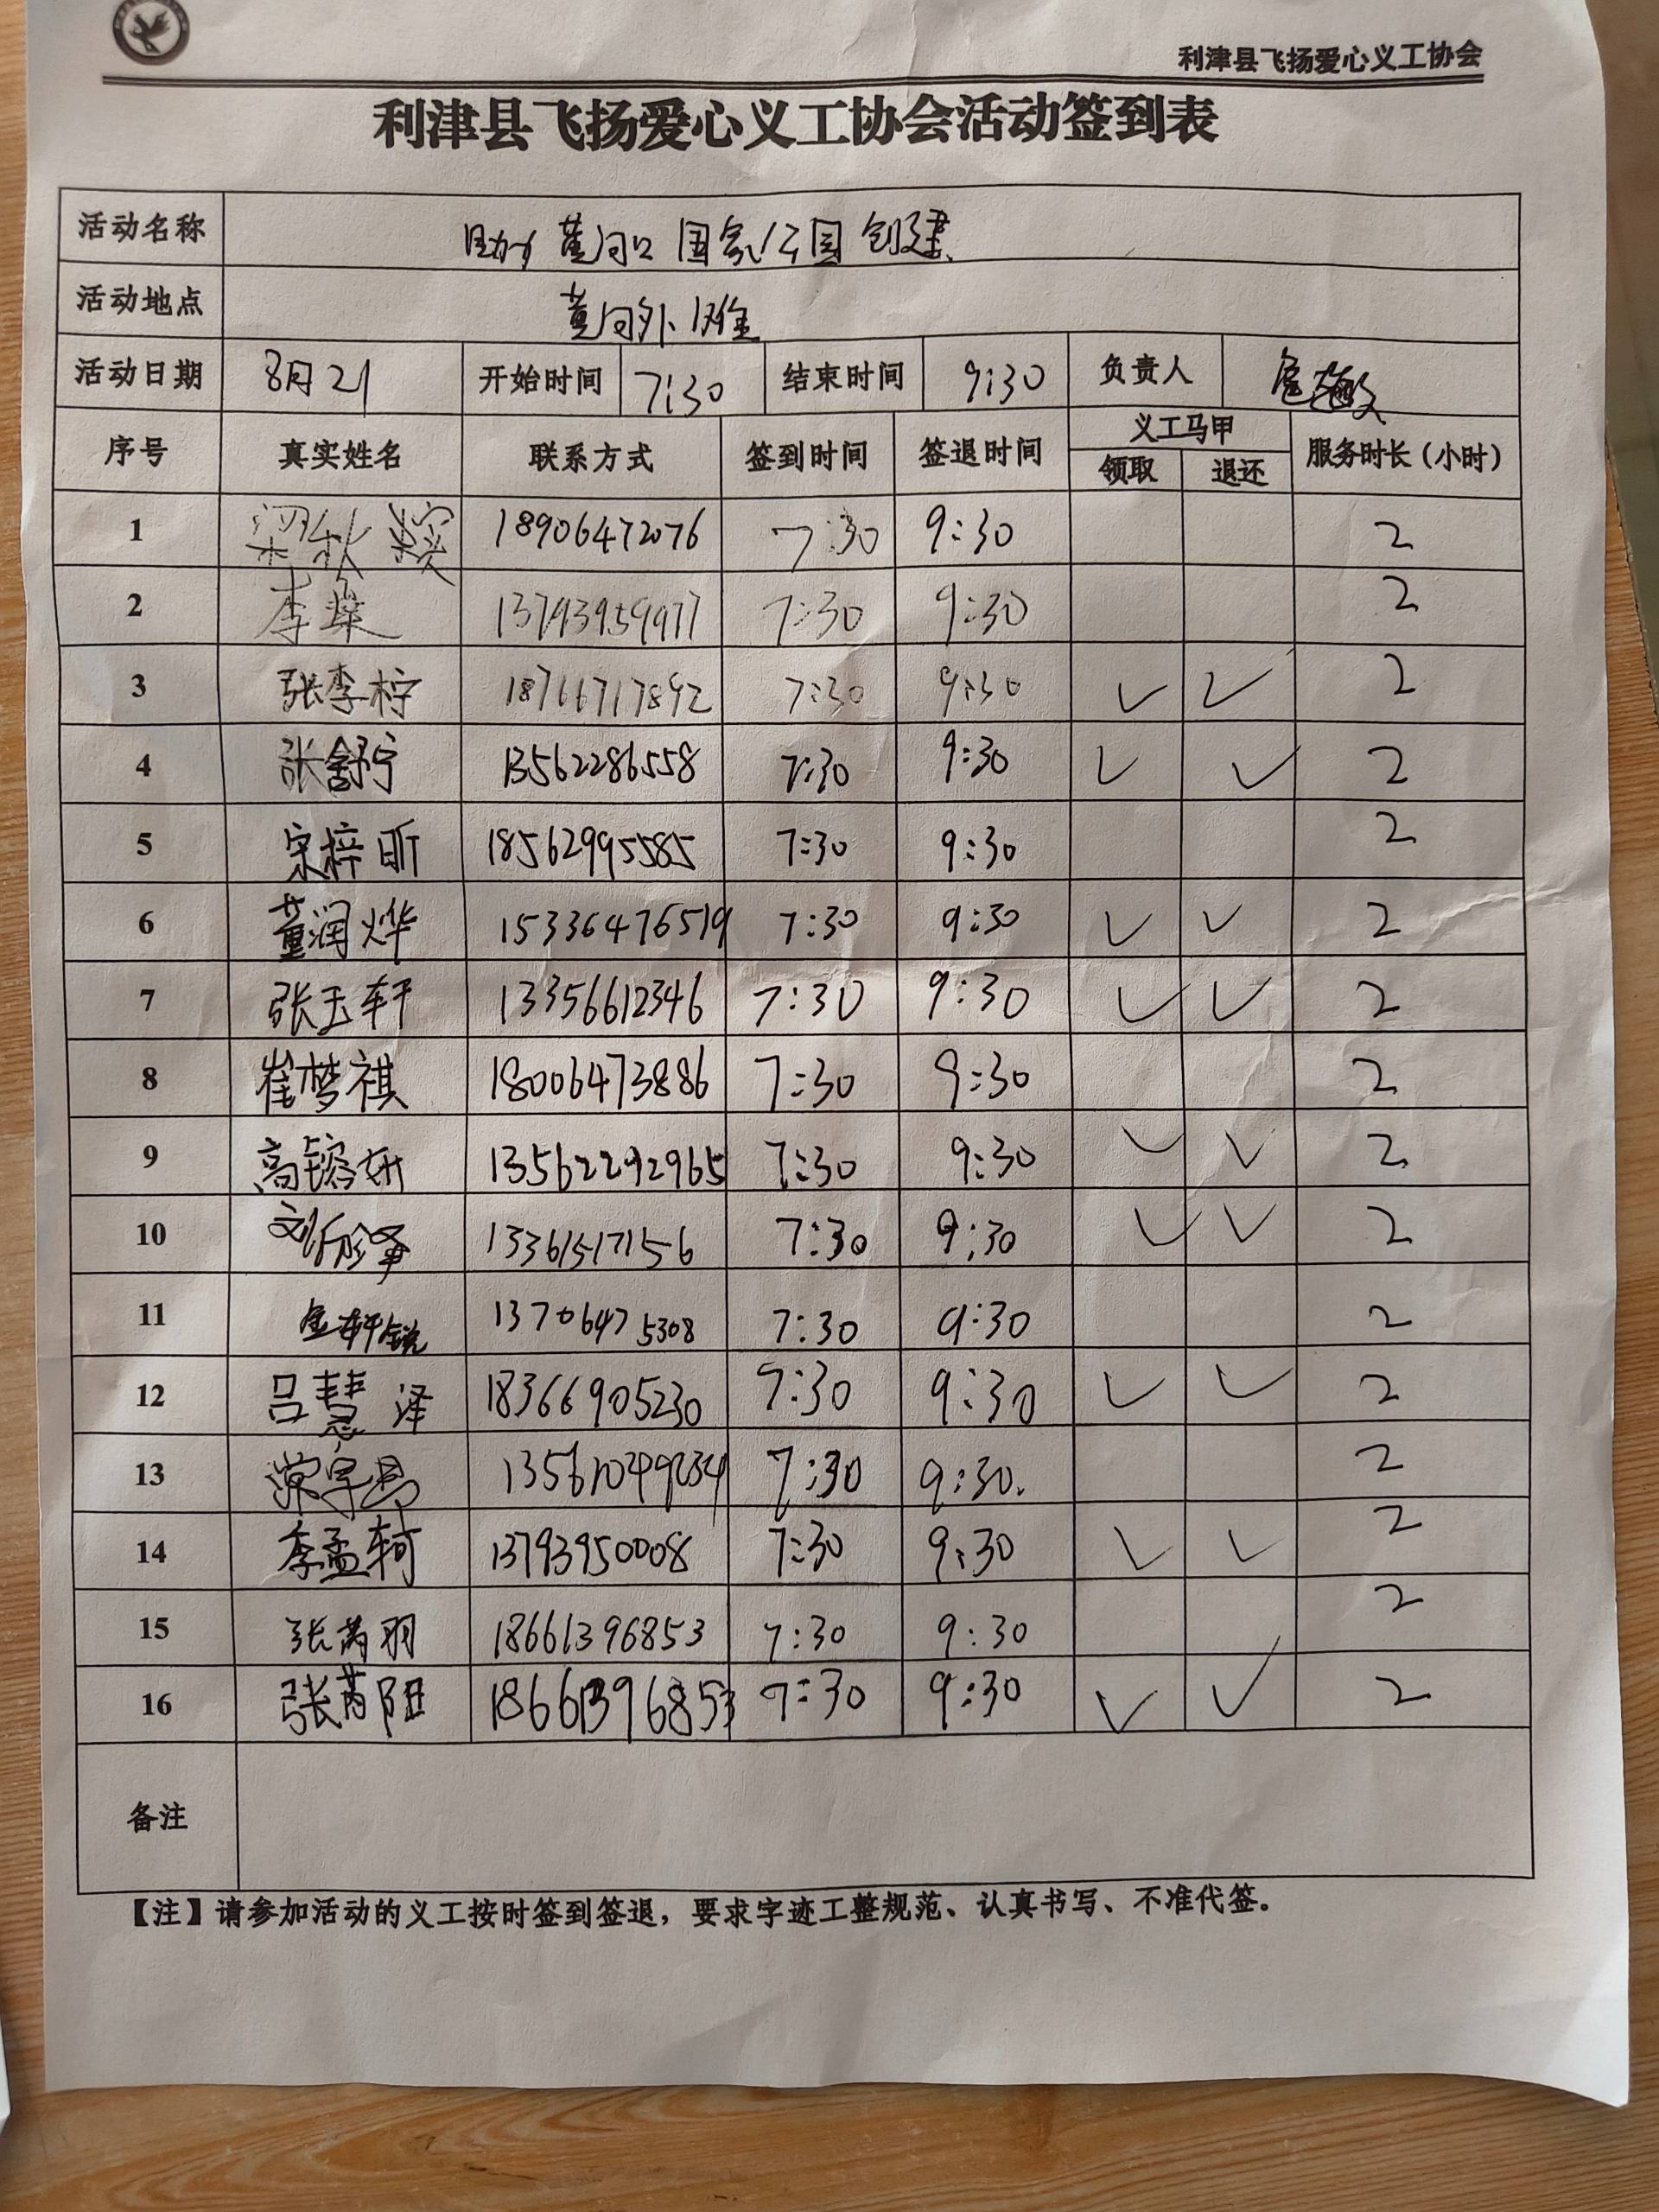 利津县飞扬爱心义工协会
利津县飞扬爱心义工协会活动签到表
活动名称 助力黄河口国家公园创建
活动地点 黄河外滩
活动日期 8月21 开始时间 7:30 结束时间 9:30 负责人
序号 真实姓名 联系方式 签到时间 签退时间 义工马甲 领取 退还 服务时长(小时)
1 梁秋 18906472076 7:30 9:30 2
2 李燊 13793959977 7:30 9:30 2
3 张李柠 18766717892 7:30 9:30 ✓ ✓ 2
4 张舒宁 13562286558 7:30 9:30 ✓ ✓ 2
5 宋梓昕 18562995585 7:30 9:30 2
6 董润烨 15336476519 7:30 9:30 ✓ ✓ 2
7 张玉轩 13356612346 7:30 9:30 ✓ ✓ 2
8 崔梦祺 18006473886 7:30 9:30 2
9 高镕妍 13562292965 7:30 9:30 ✓ ✓ 2
10 刘 13361517156 7:30 9:30 ✓ ✓ 2
11 金轩锐 13706475308 7:30 9:30 2
12 吕慧泽 18366905230 7:30 9:30 ✓ ✓ 2
13 13561049234 7:30 9:30. 2
14 李孟轲 13793950008 7:30 9:30 ✓ ✓ 2
15 张芮羽 18661396853 7:30 9:30 2
16 张芮阳 18661396853 7:30 9:30 ✓ ✓ 2
备注
【注】请参加活动的义工按时签到签退，要求字迹工整规范、认真书写、不准代签。